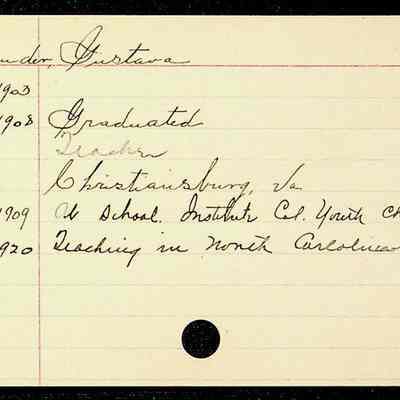 uder, Gustava
1903
1908 Graduated
Teacher
Christiansburg, Va
1909 At School. Institute Col. Youth Ch
1920 Teaching in North Carolina